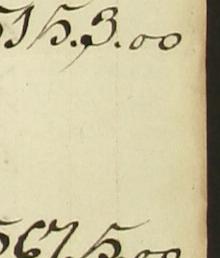 515.3.00
567.5.00